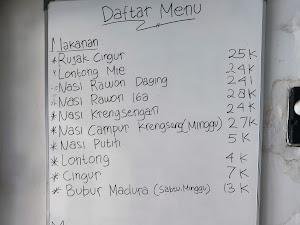 Daftar Menu
Makanan
* Rujak Cingur 25K
* Lontong Mie 24K
* Nasi Rawon Daging 24
* Nasi Rawon 28K
* Nasi Krengsengan 24K
* Nasi Campur Krengseng (Minggu) 27K
* Nasi Putih 5K
* Lontong 4K
* Cingur 7K
* Bubur Madura (Sabtu, Minggu) 13K